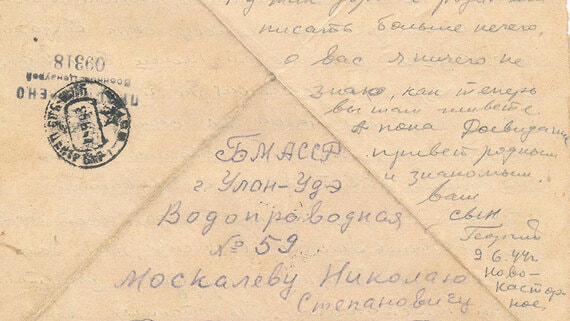 писать больше нечего,
о вас я ничего не
знаю, как теперь
вы там живете.
А пока Досвидание
привет родным
и знакомым.
ваш
сын
Георгий
9.6.44г
Ново-
Касторное
ПРОСМОТРЕНО
Военной Цензурой
09318
БМАССР
г. Улан-Удэ
Водопроводная
№ 59
Москалеву Николаю
Степановичу